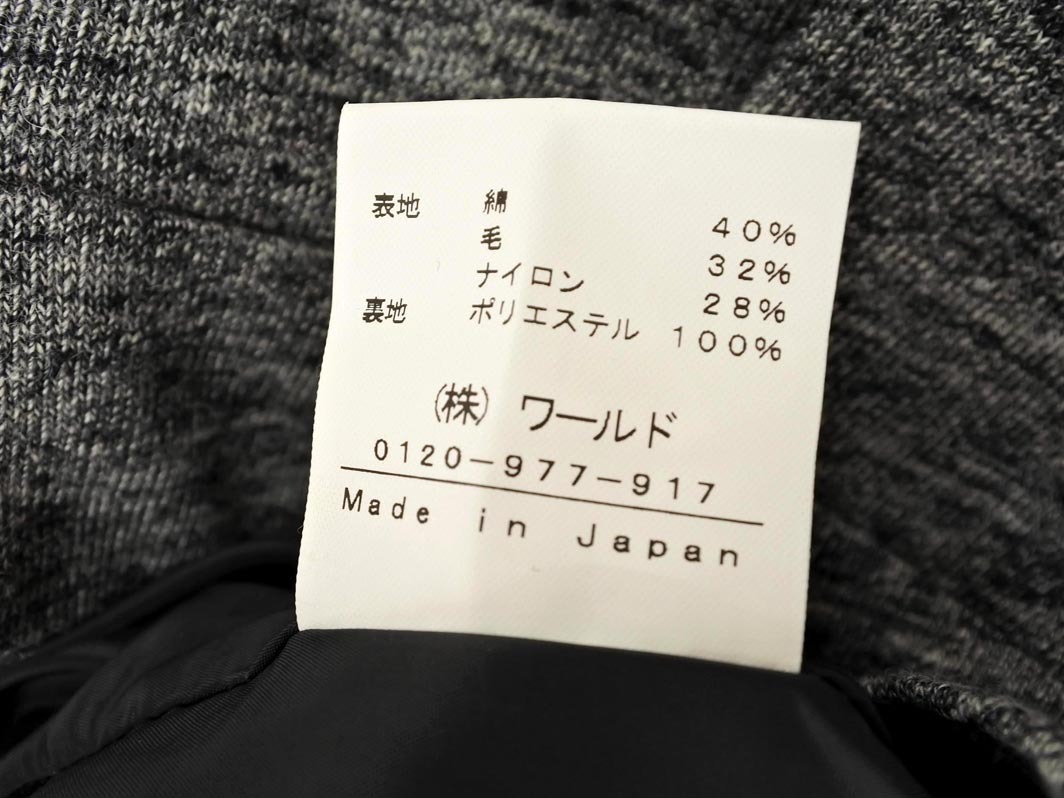 表地 綿 40%
毛 32%
ナイロン 28%
裏地 ポリエステル 100%
(株) ワールド
0120-977-917
Made in Japan